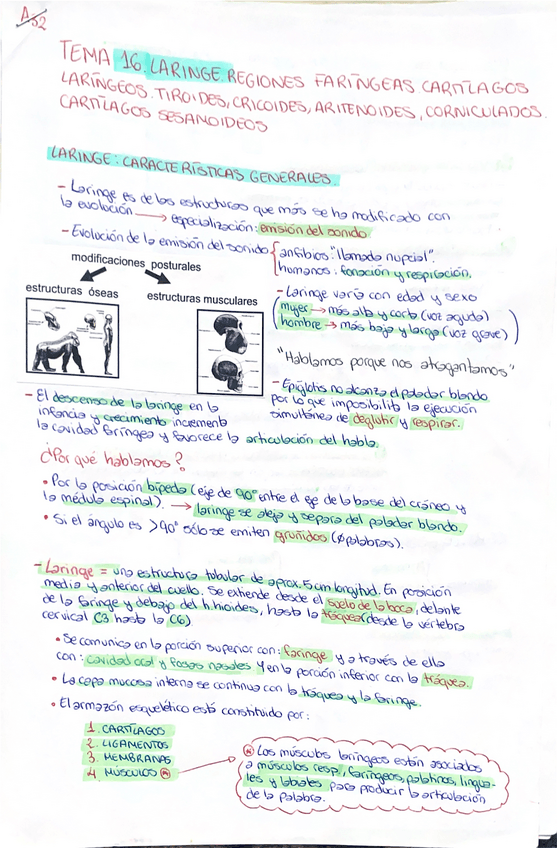 A32
TEMA 16. LARINGE REGIONES FARÍNGEAS CARTÍLAGOS
LARÍNGEOS. TIROIDES, CRICOIDES, ARITENOIDES, CORNICULADOS.
CARTÍLAGOS SESANOIDEOS
LARINGE: CARACTERÍSTICAS GENERALES.
- Laringe es de las estructuras que más se ha modificado con
la evolución → especialización: emisión del sonido
- Evolución de la emisión del sonido { anfibios: "llamada nupcial".
humanos: fonación y respiración.
modificaciones posturales
estructuras óseas
estructuras musculares
- Laringe varía con edad y sexo
(mujer → más alta y corta (voz aguda)
hombre → más baja y larga (voz grave))
"Hablamos porque nos atragantamos"
- Epiglotis no alcanza el paladar blando
por lo que imposibilita la ejecución
simultánea de deglutir y respirar.
- El descenso de la laringe en la
infancia y crecimiento incrementa
la cavidad faríngea y favorece la articulación del habla.
¿Por qué hablamos?
• Por la posición bípeda (eje de 90° entre el eje de la base del cráneo y
la médula espinal). → laringe se aleja y separa del paladar blando.
• Si el ángulo es >90° sólo se emiten gruñidos (∅ palabras).
- Laringe = una estructura tubular de aprox. 5cm longitud. En posición
media y anterior del cuello. Se extiende desde el suelo de la boca, delante
de la faringe y debajo del h. hioides, hasta la tráquea (desde la vértebra
cervical C3 hasta la C6)
• Se comunica en la porción superior con: faringe y a través de ella
con: cavidad oral y fosas nasales y en la porción inferior con la tráquea.
• La capa mucosa interna se continua con la tráquea y la faringe.
• El armazón esquelético está constituido por:
1. CARTÍLAGOS
2. LIGAMENTOS
3. MEMBRANAS
4. MÚSCULOS
Los músculos laríngeos están asociados
a músculos resp., faríngeos, palatinos, lingua-
les y labiales para producir la articulación
de la palabra.